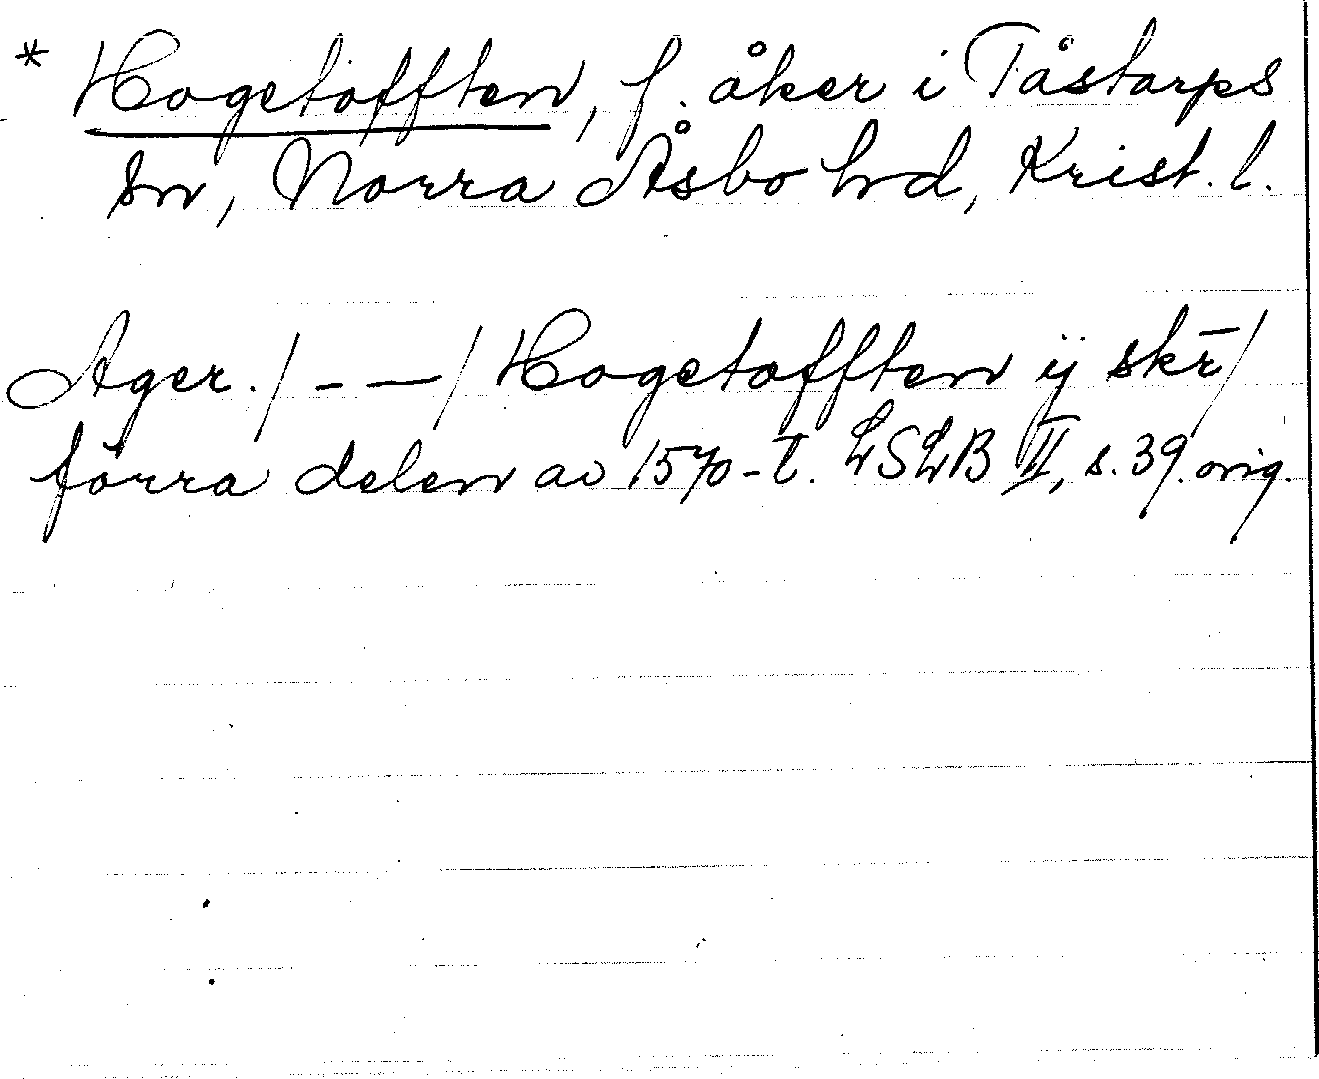 * Hogetofften, f. åker i Tåstarps
sn, Norra Åsbo hrd, Krist. l.
Ager. / - — / Hogetofften ij skr̄ /
förra delen av 1570-t. LSLB II, s. 39. orig.